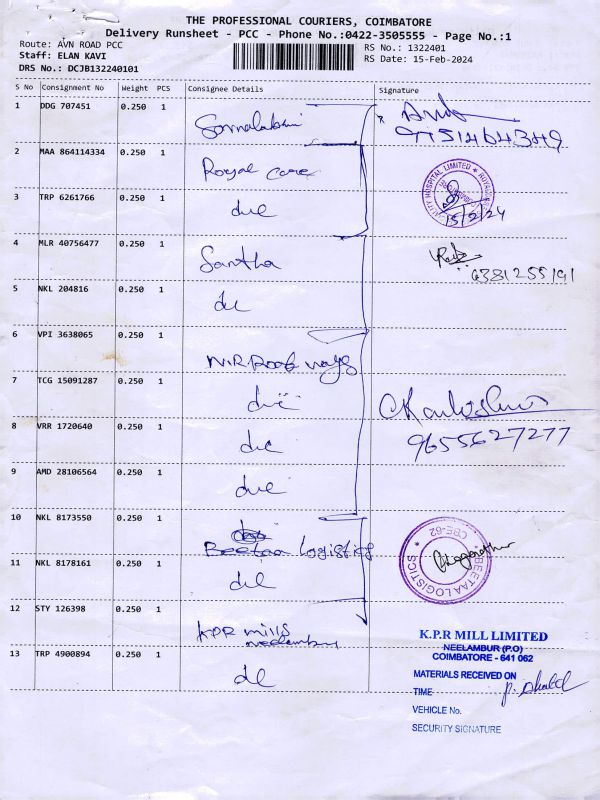 THE PROFESSIONAL COURIERS, COIMBATORE
Delivery Runsheet - PCC - Phone No.:0422-3505555 - Page No.:1
Route: AVN ROAD PCC
Staff: ELAN KAVI
DRS No.: DCJB132240101
RS No.: 1322401
RS Date: 15-Feb-2024
S No Consignment No Weight PCS Consignee Details Signature
1 DDG 707451 0.250 1
9751464349
2 MAA 864114334 0.250 1 Royal care
ROYALCARE
HOSPITAL LIMITED
15/2/24
3 TRP 6261766 0.250 1
4 MLR 40756477 0.250 1 Santha
6381255191
5 NKL 204816 0.250 1
6 VPI 3638065 0.250 1
7 TCG 15091287 0.250 1
8 VRR 1720640 0.250 1
9655627277
9 AMD 28106564 0.250 1
10 NKL 8173550 0.250 1
Beetaa Logistics
BEETAA LOGISTICS
CBE-62
11 NKL 8178161 0.250 1
12 STY 126398 0.250 1 KPR mills
neelambur
K.P.R MILL LIMITED
NEELAMBUR (P.O)
COIMBATORE - 641 062
13 TRP 4900894 0.250 1
MATERIALS RECEIVED ON
TIME
VEHICLE No.
SECURITY SIGNATURE